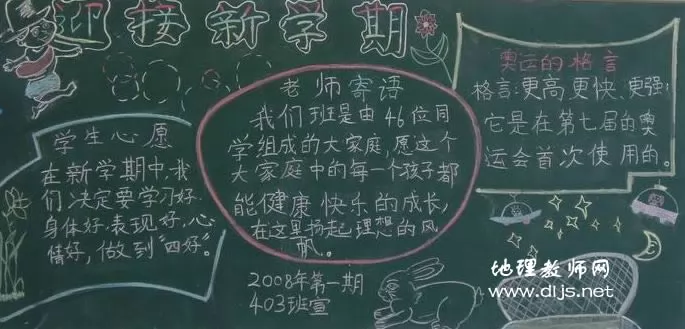 迎接新学期
学生心愿
在新学期中,我
们决定要学习好.
身体好.表现好.心
情好,做到"四好"。
老师寄语
我们班是由46位同
学组成的大家庭,愿这个
大家庭中的每一个孩子都
能健康快乐的成长,
在这里扬起理想的风
帆。
2008年第一期
403班宣
奥运的格言
格言:更高更快、更强!
它是在第七届的奥
运会首次使用的。
地理教师网
www.dljs.net